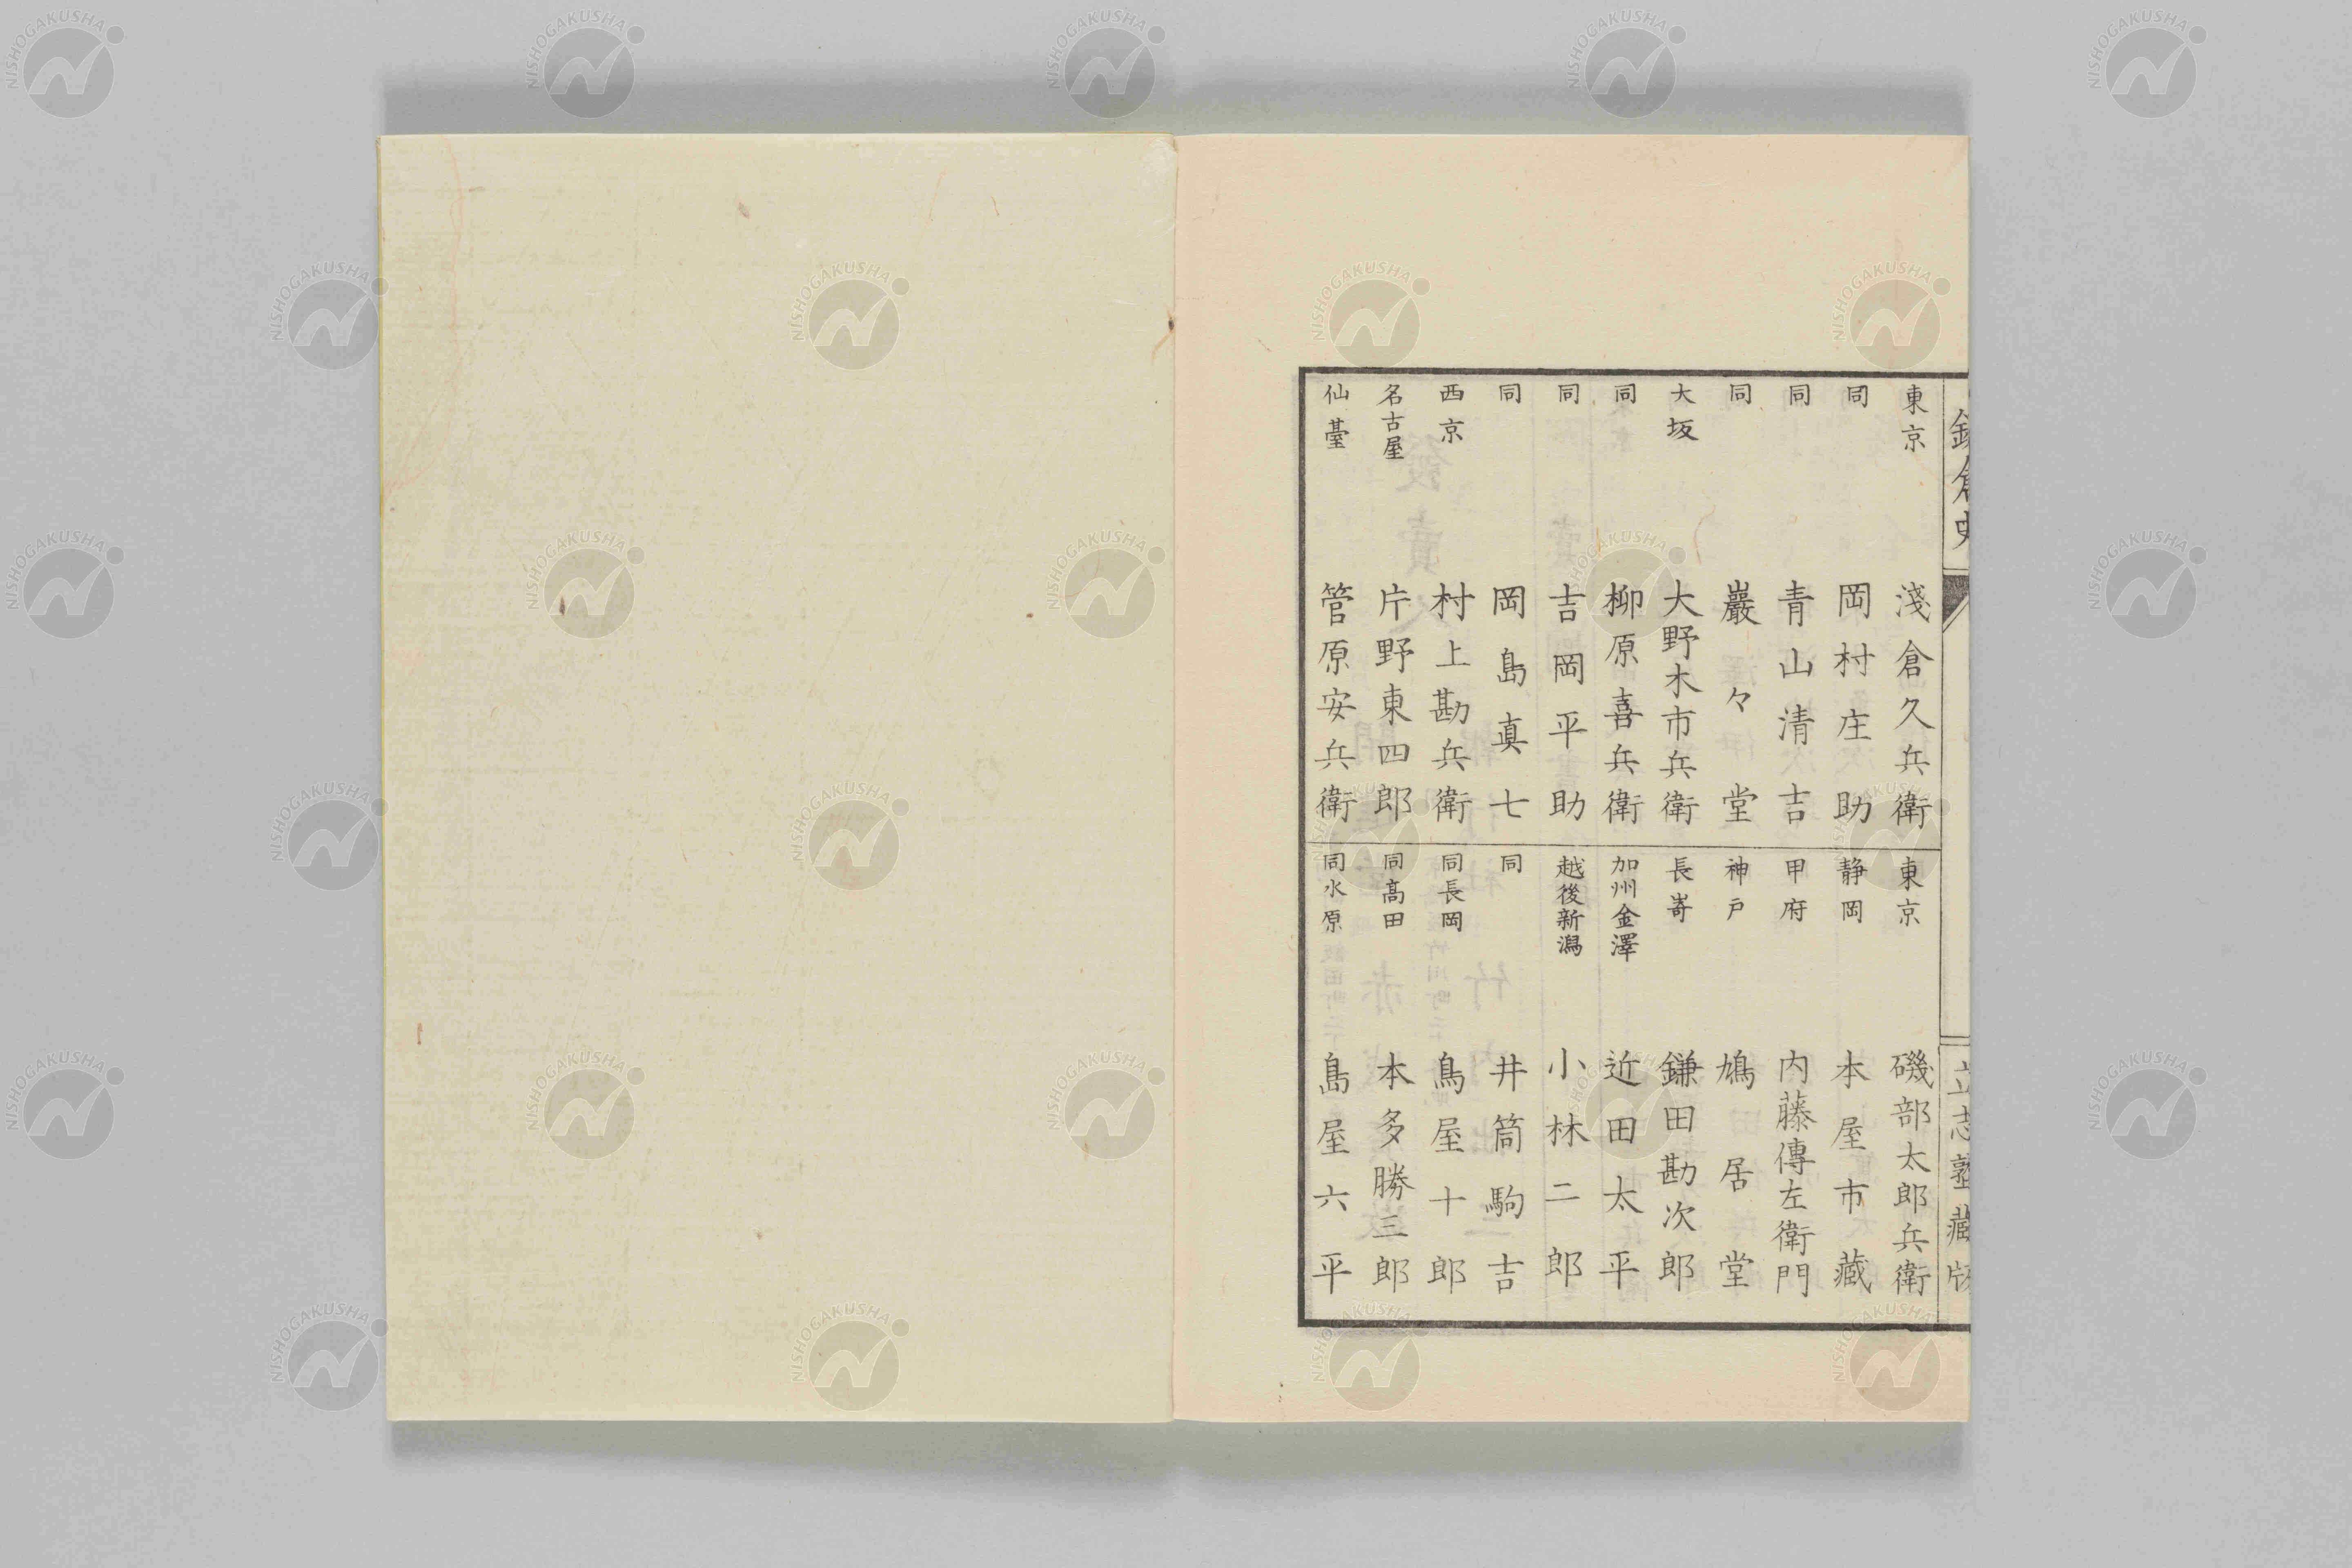 鎌倉史
立志塾藏版
東京 淺倉久兵衛
同 岡村庄助
同 青山清吉
同 巖々堂
大坂 大野木市兵衛
同 柳原喜兵衛
同 吉岡平助
同 岡島真七
西京 村上勘兵衛
名古屋 片野東四郎
仙臺 管原安兵衛
東京 磯部太郎兵衛
静岡 本屋市藏
甲府 内藤傳左衛門
神戸 鳩居堂
長嵜 鎌田勘次郎
加州金澤 近田太平
越後新潟 小林二郎
同 井筒駒吉
同長岡 鳥屋十郎
同高田 本多勝三郎
同水原 島屋六平
NISHOGAKUSHA